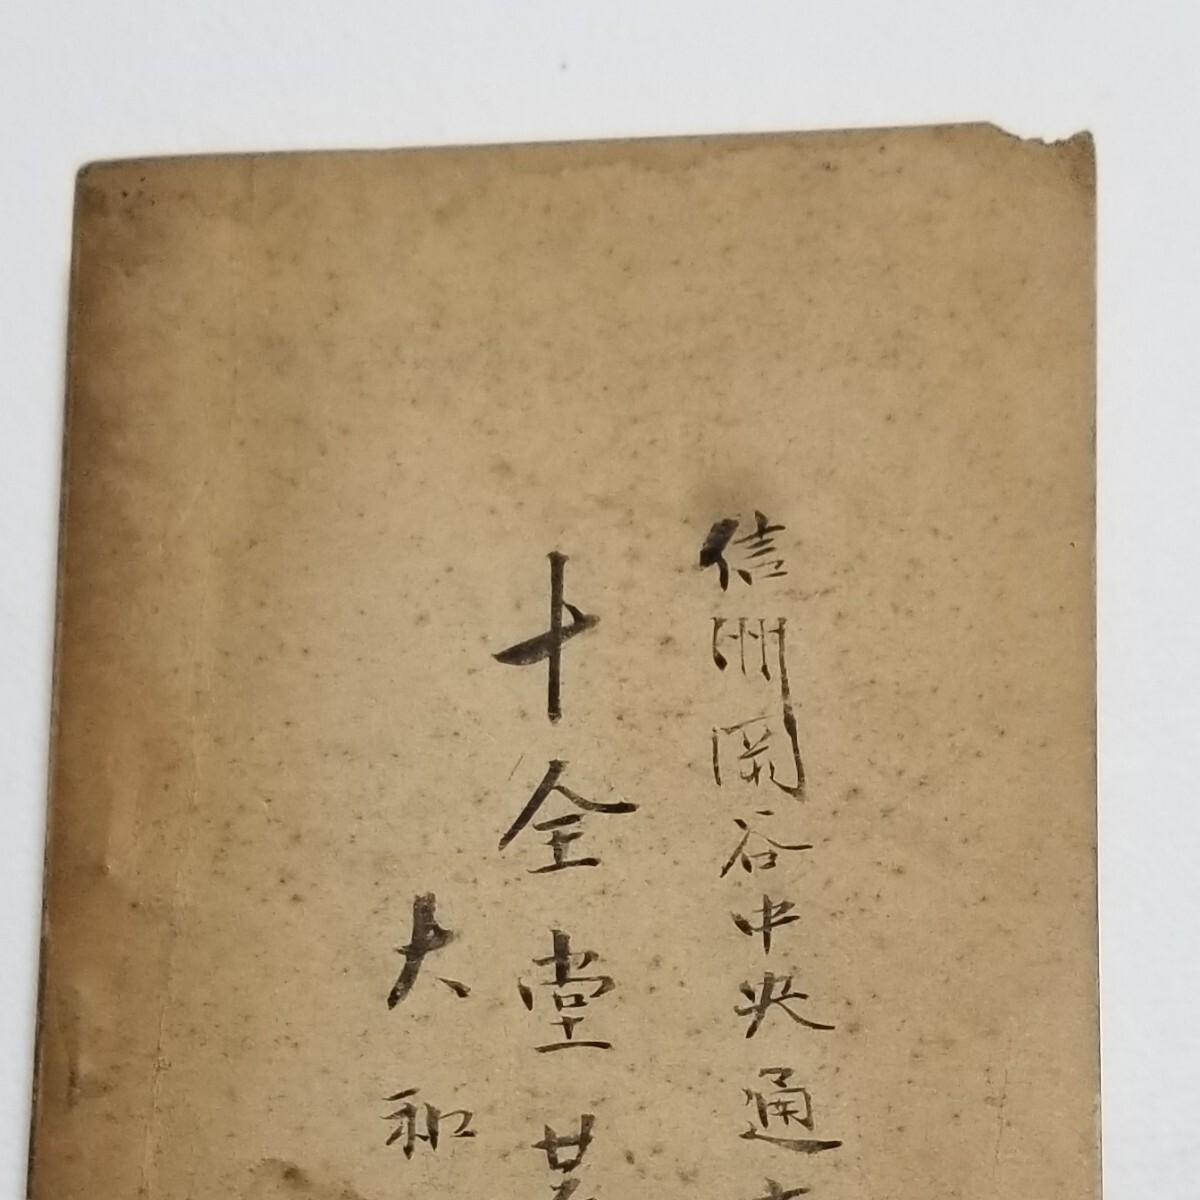 信州岡谷中央通
十全堂
大和